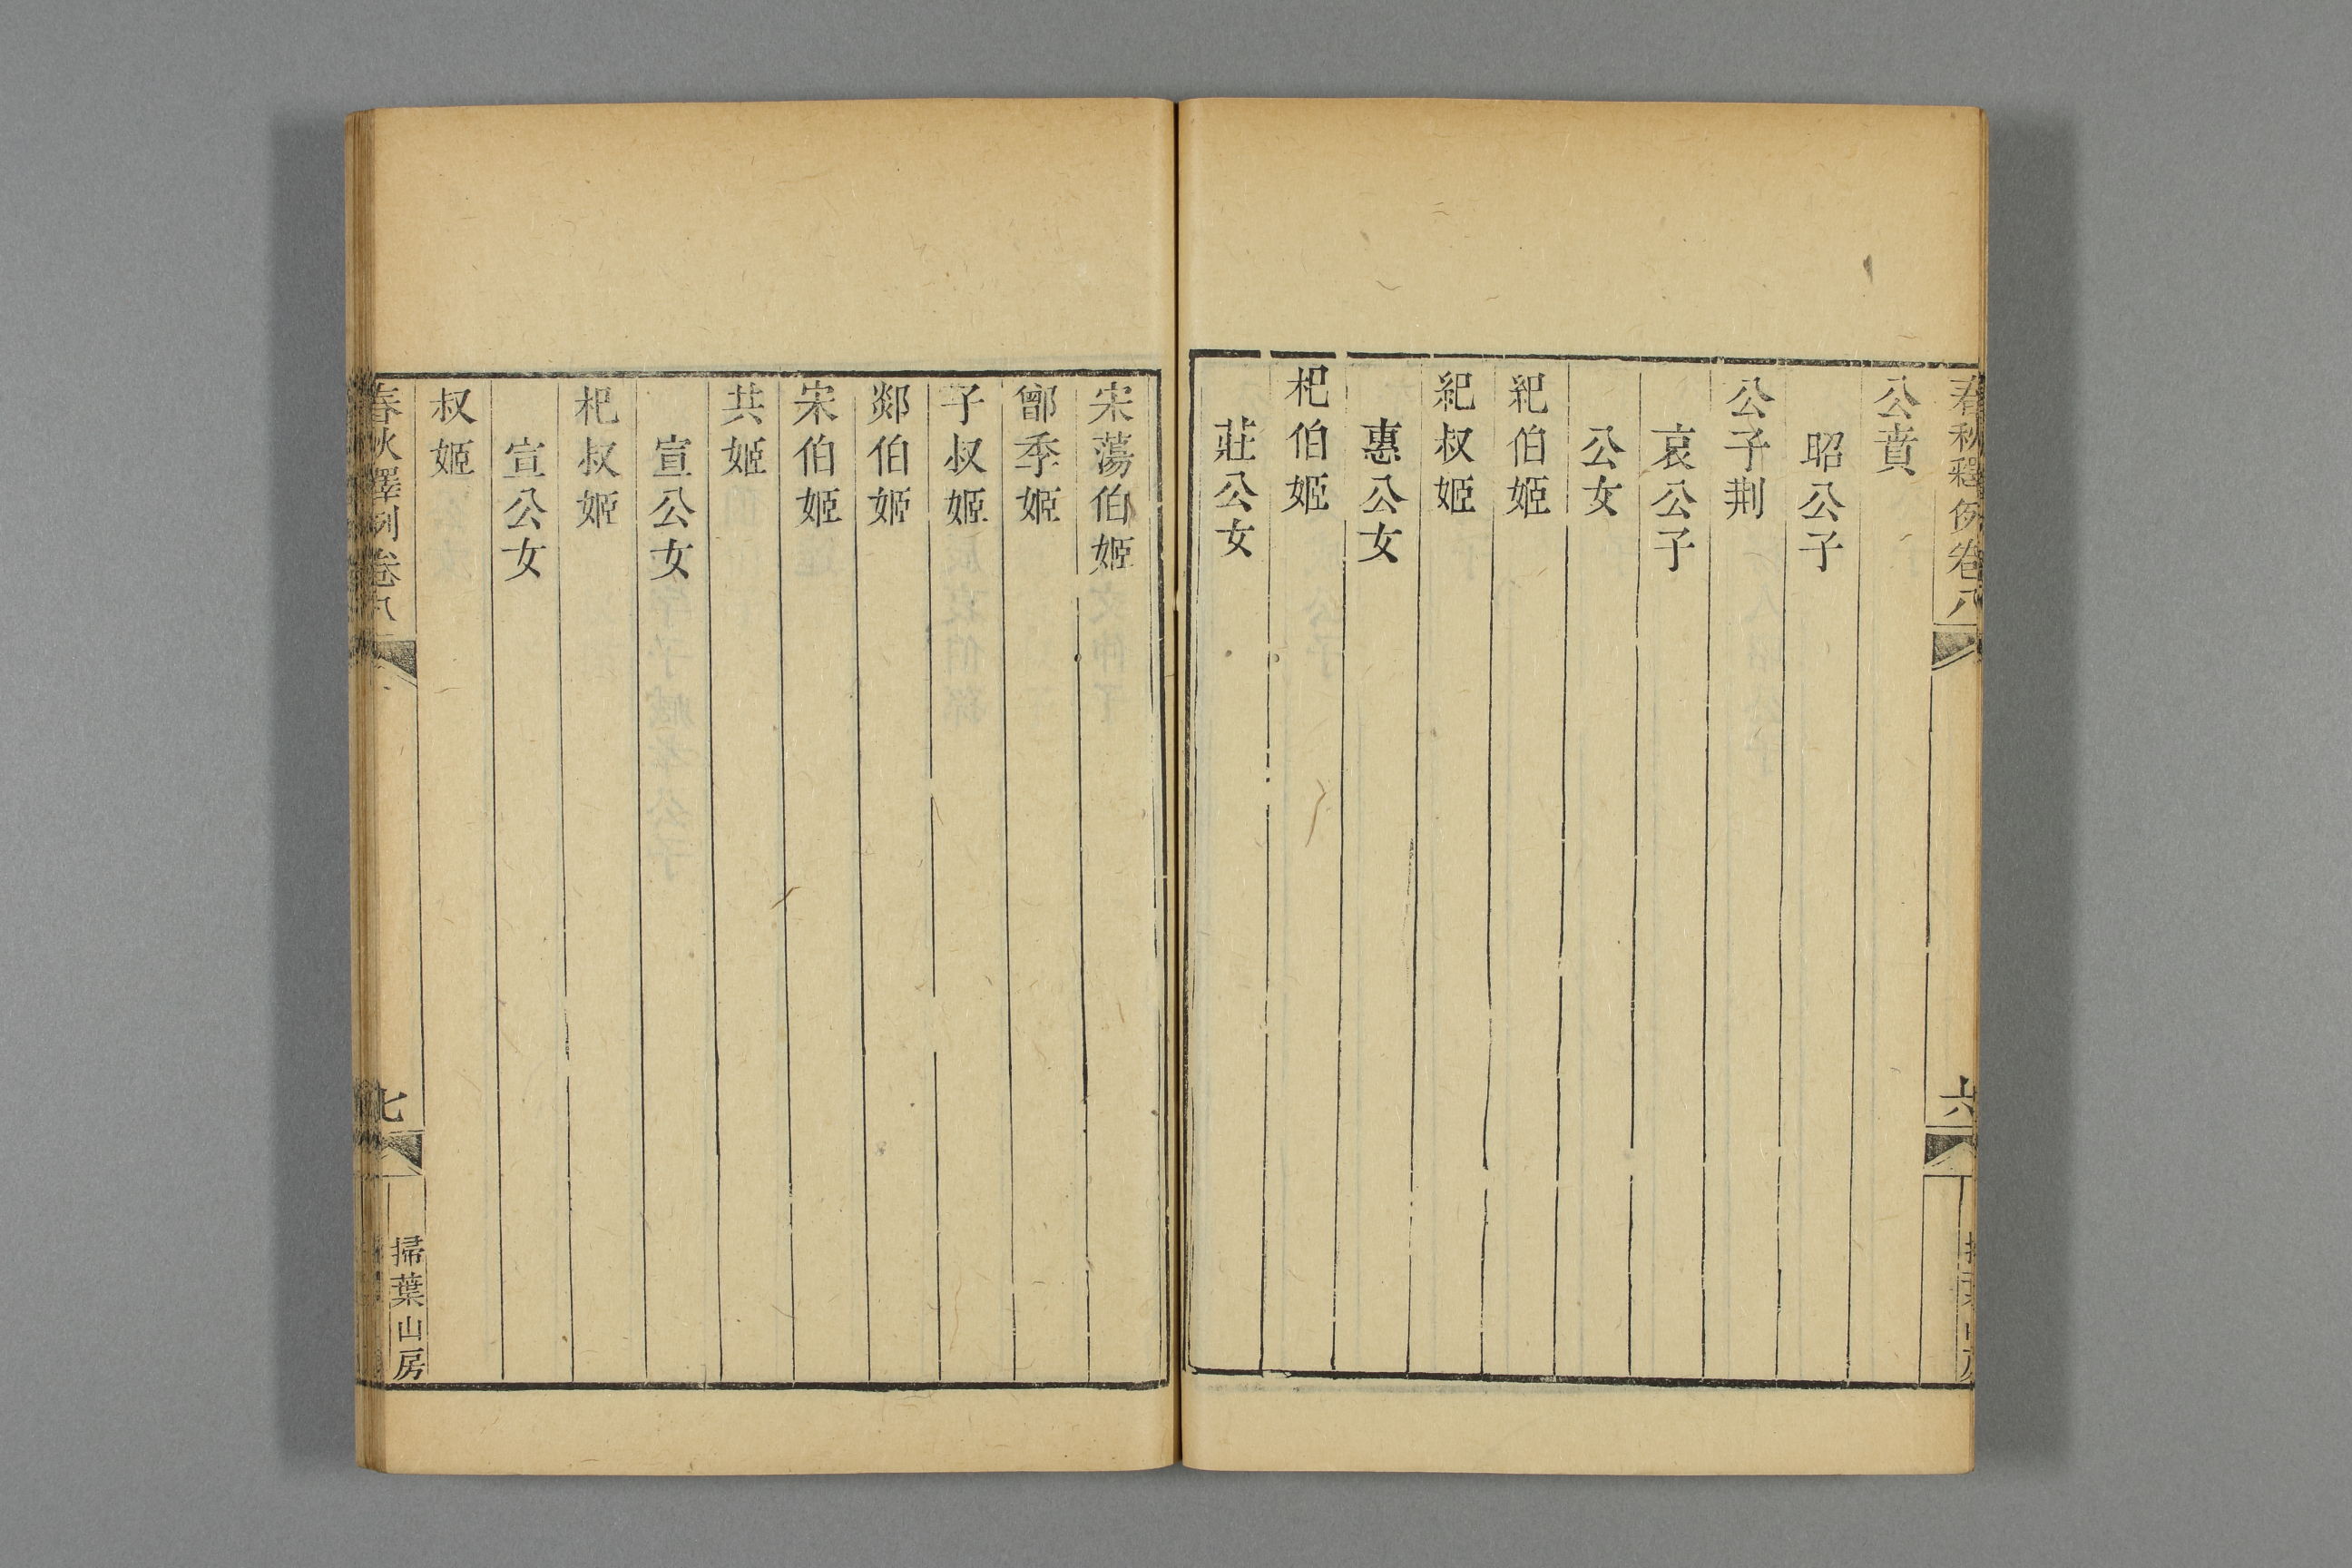 春秋釋例卷八
六
公賁
昭公子
公子荆
哀公子
公女
紀伯姬
紀叔姬
惠公女
杞伯姬
莊公女
宋蕩伯姬
鄫季姬
子叔姬
郯伯姬
宋伯姬
共姬
宣公女
杞叔姬
宣公女
叔姬
春秋釋例卷八
七
掃葉山房